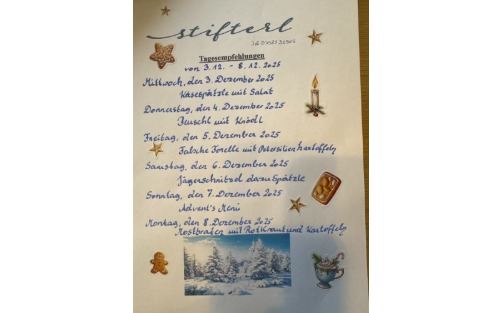 stifterl
Tagesempfehlungen
von 3.12. - 8.12.2025
Mittwoch, den 3. Dezember 2025
Käsespätzle mit Salat
Donnerstag, den 4. Dezember 2025
Beuschl mit Knödl
Freitag, den 5. Dezember 2025
Falsche Forelle mit Petersilienkartoffeln
Samstag, den 6. Dezember 2025
Jägerschnitzel dazu Spätzle
Sonntag, den 7. Dezember 2025
Advent's Menü
Montag, den 8. Dezember 2025
Rostbraten mit Rotkraut und Kartoffeln